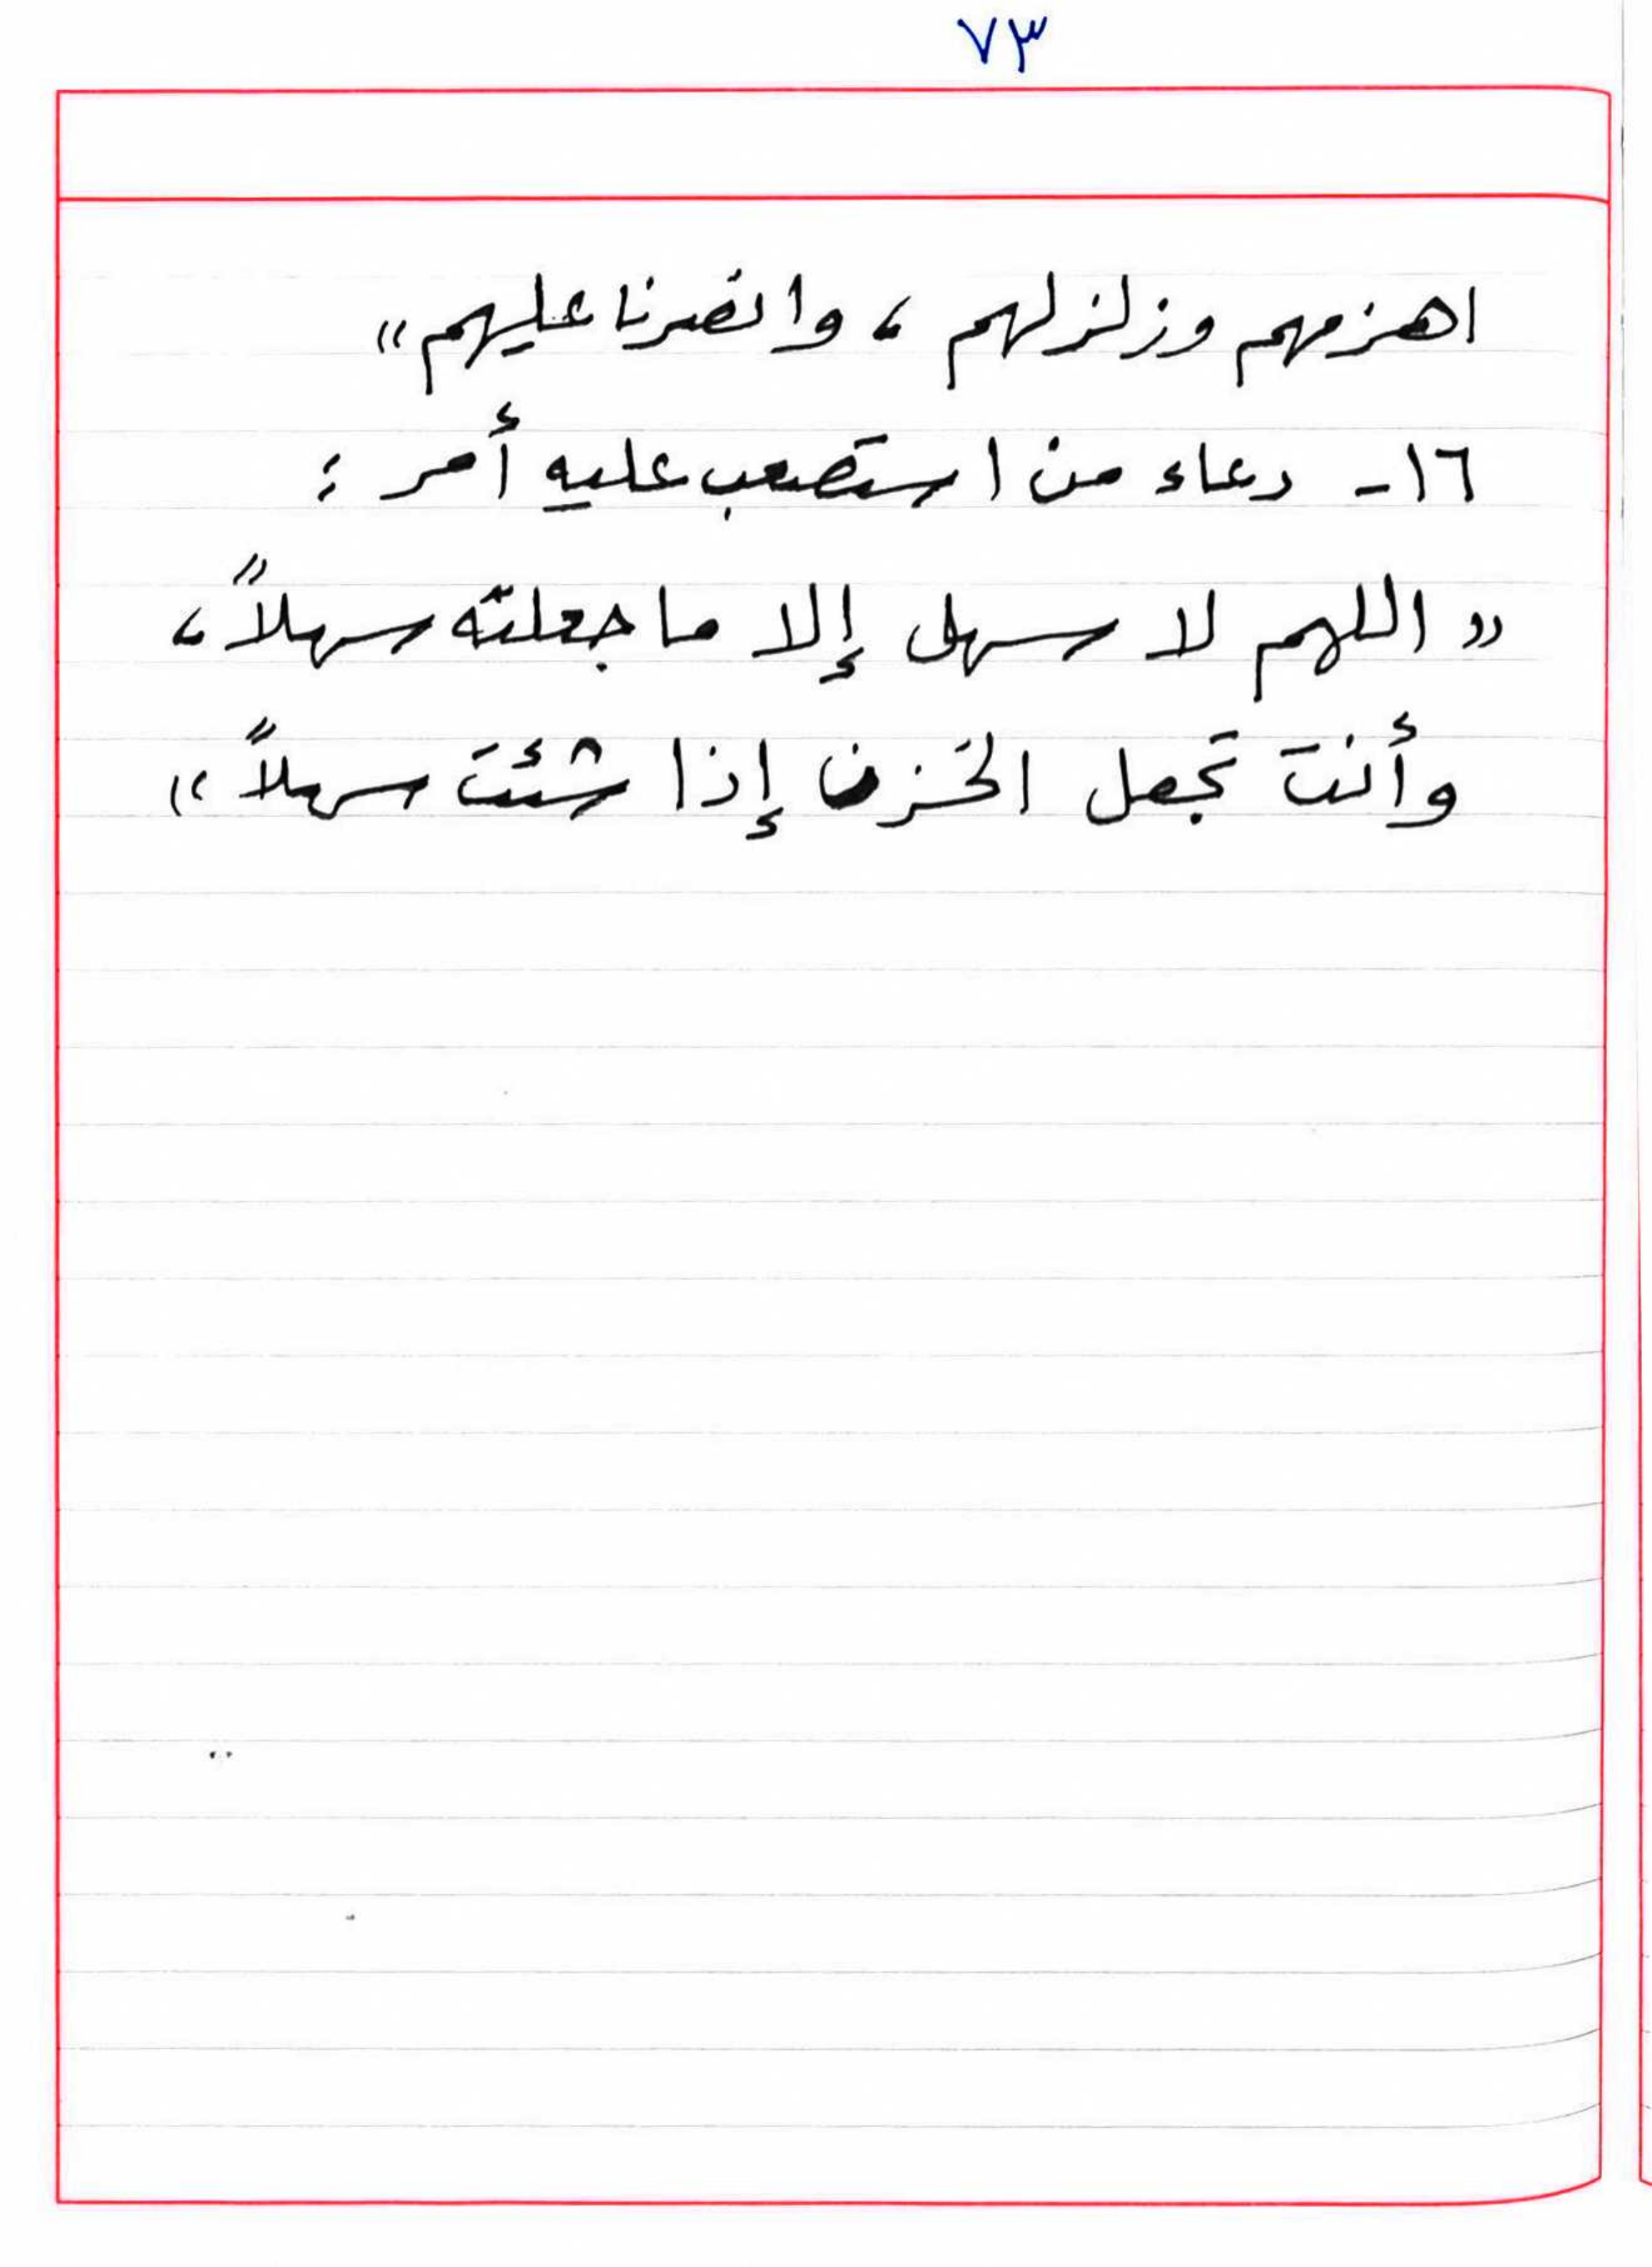 ٧٣
اهزمهم وزلزلهم ، وانصرنا عليهم"
١٦- دعاء من استصعب عليه أمر :
"اللهم لا سهل إلا ما جعلته سهلاً ،
وأنت تجعل الحَزن إذا شئت سهلاً"